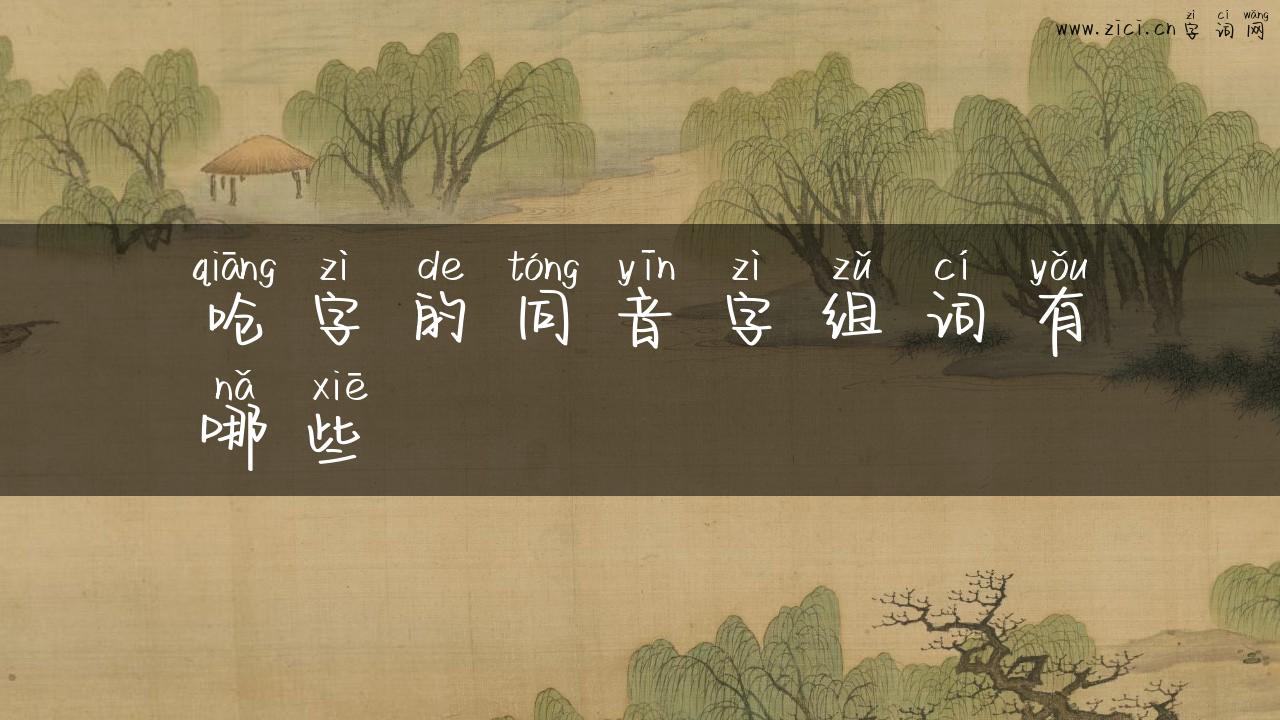 zì cí wǎng
www.zici.cn 字词网
qiāng zì de tóng yīn zì zǔ cí yǒu
呛字的同音字组词有
nǎ xiē
哪些